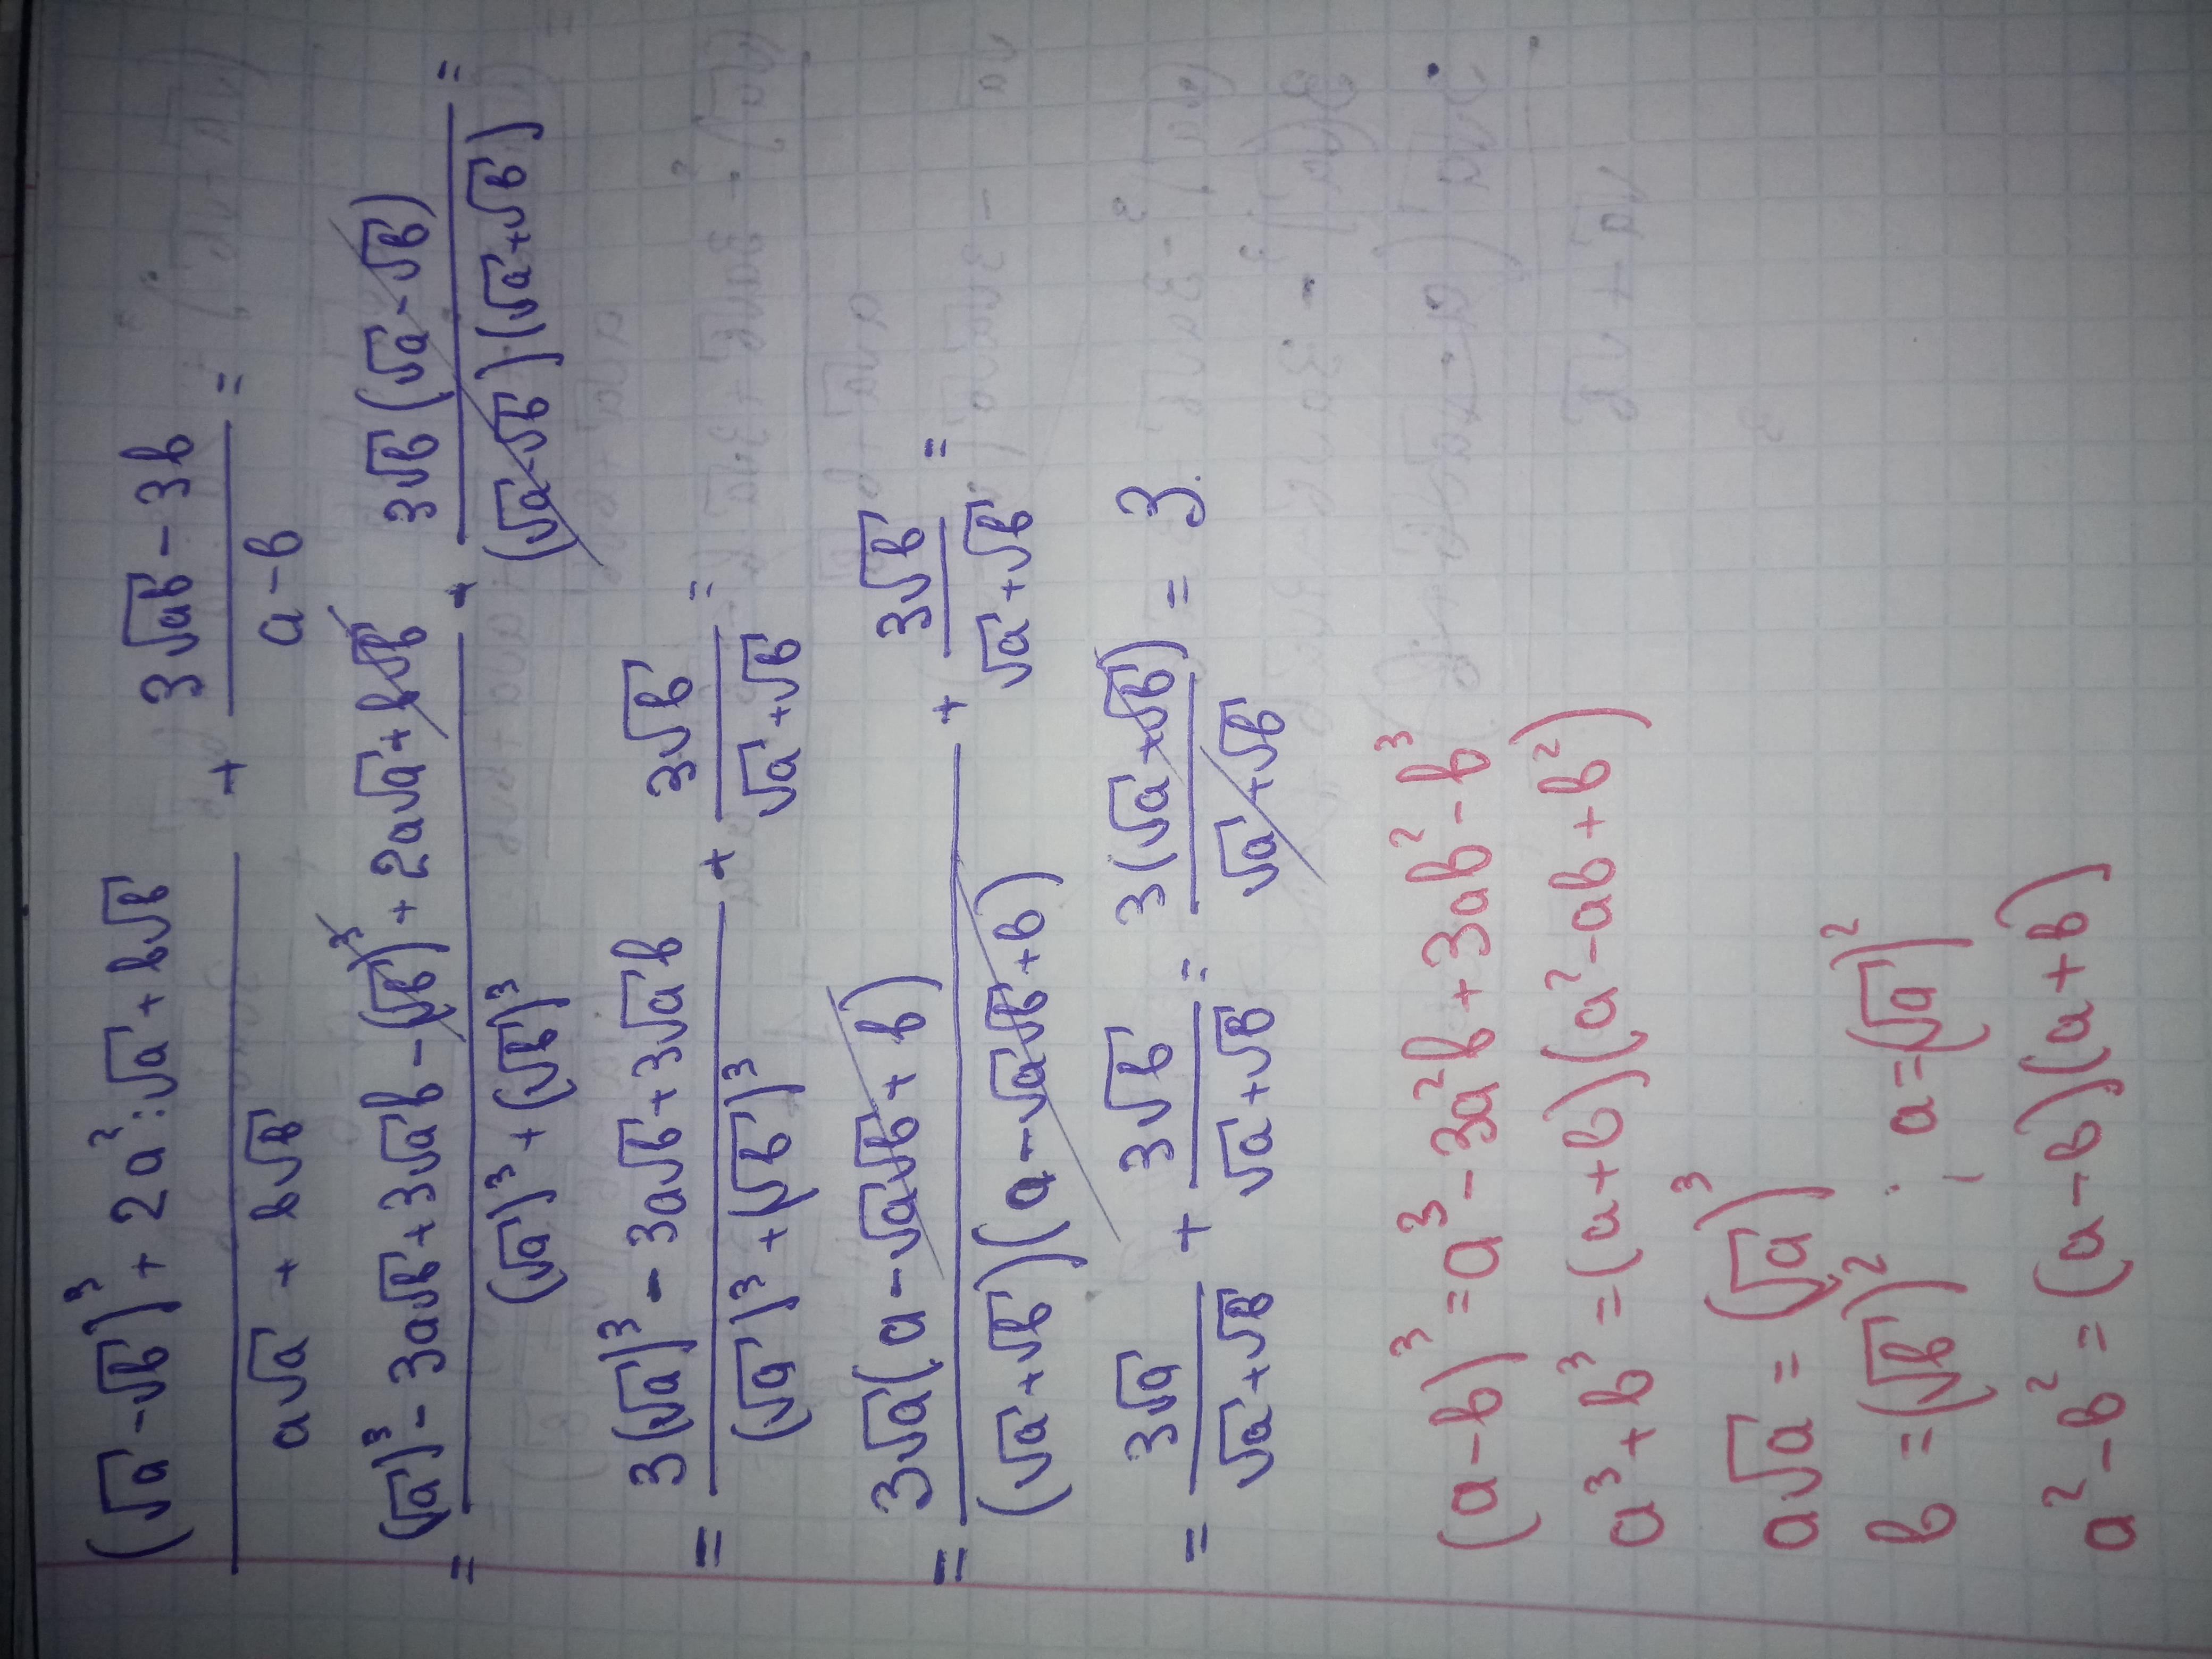 (√a - √b)³ + 2a² : √a + b√b / a√a + b√b + 3√ab - 3b / a - b =
= (√a)³ - 3a√b + 3√a b - (√b)³ + 2a√a + b√b / (√a)³ + (√b)³ + 3√b (√a - √b) / (√a - √b)(√a + √b) =
= 3(√a)³ - 3a√b + 3√a b / (√a)³ + (√b)³ + 3√b / √a + √b =
= 3√a (a - √a√b + b) / (√a + √b)(a - √a√b + b) + 3√b / √a + √b =
= 3√a / √a + √b + 3√b / √a + √b = 3(√a + √b) / √a + √b = 3.
(a - b)³ = a³ - 3a²b + 3ab² - b³
a³ + b³ = (a + b)(a² - ab + b²)
a√a = (√a)³
b = (√b)² ; a = (√a)²
a² - b² = (a - b)(a + b)